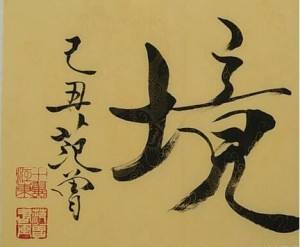 境
己丑 范曾